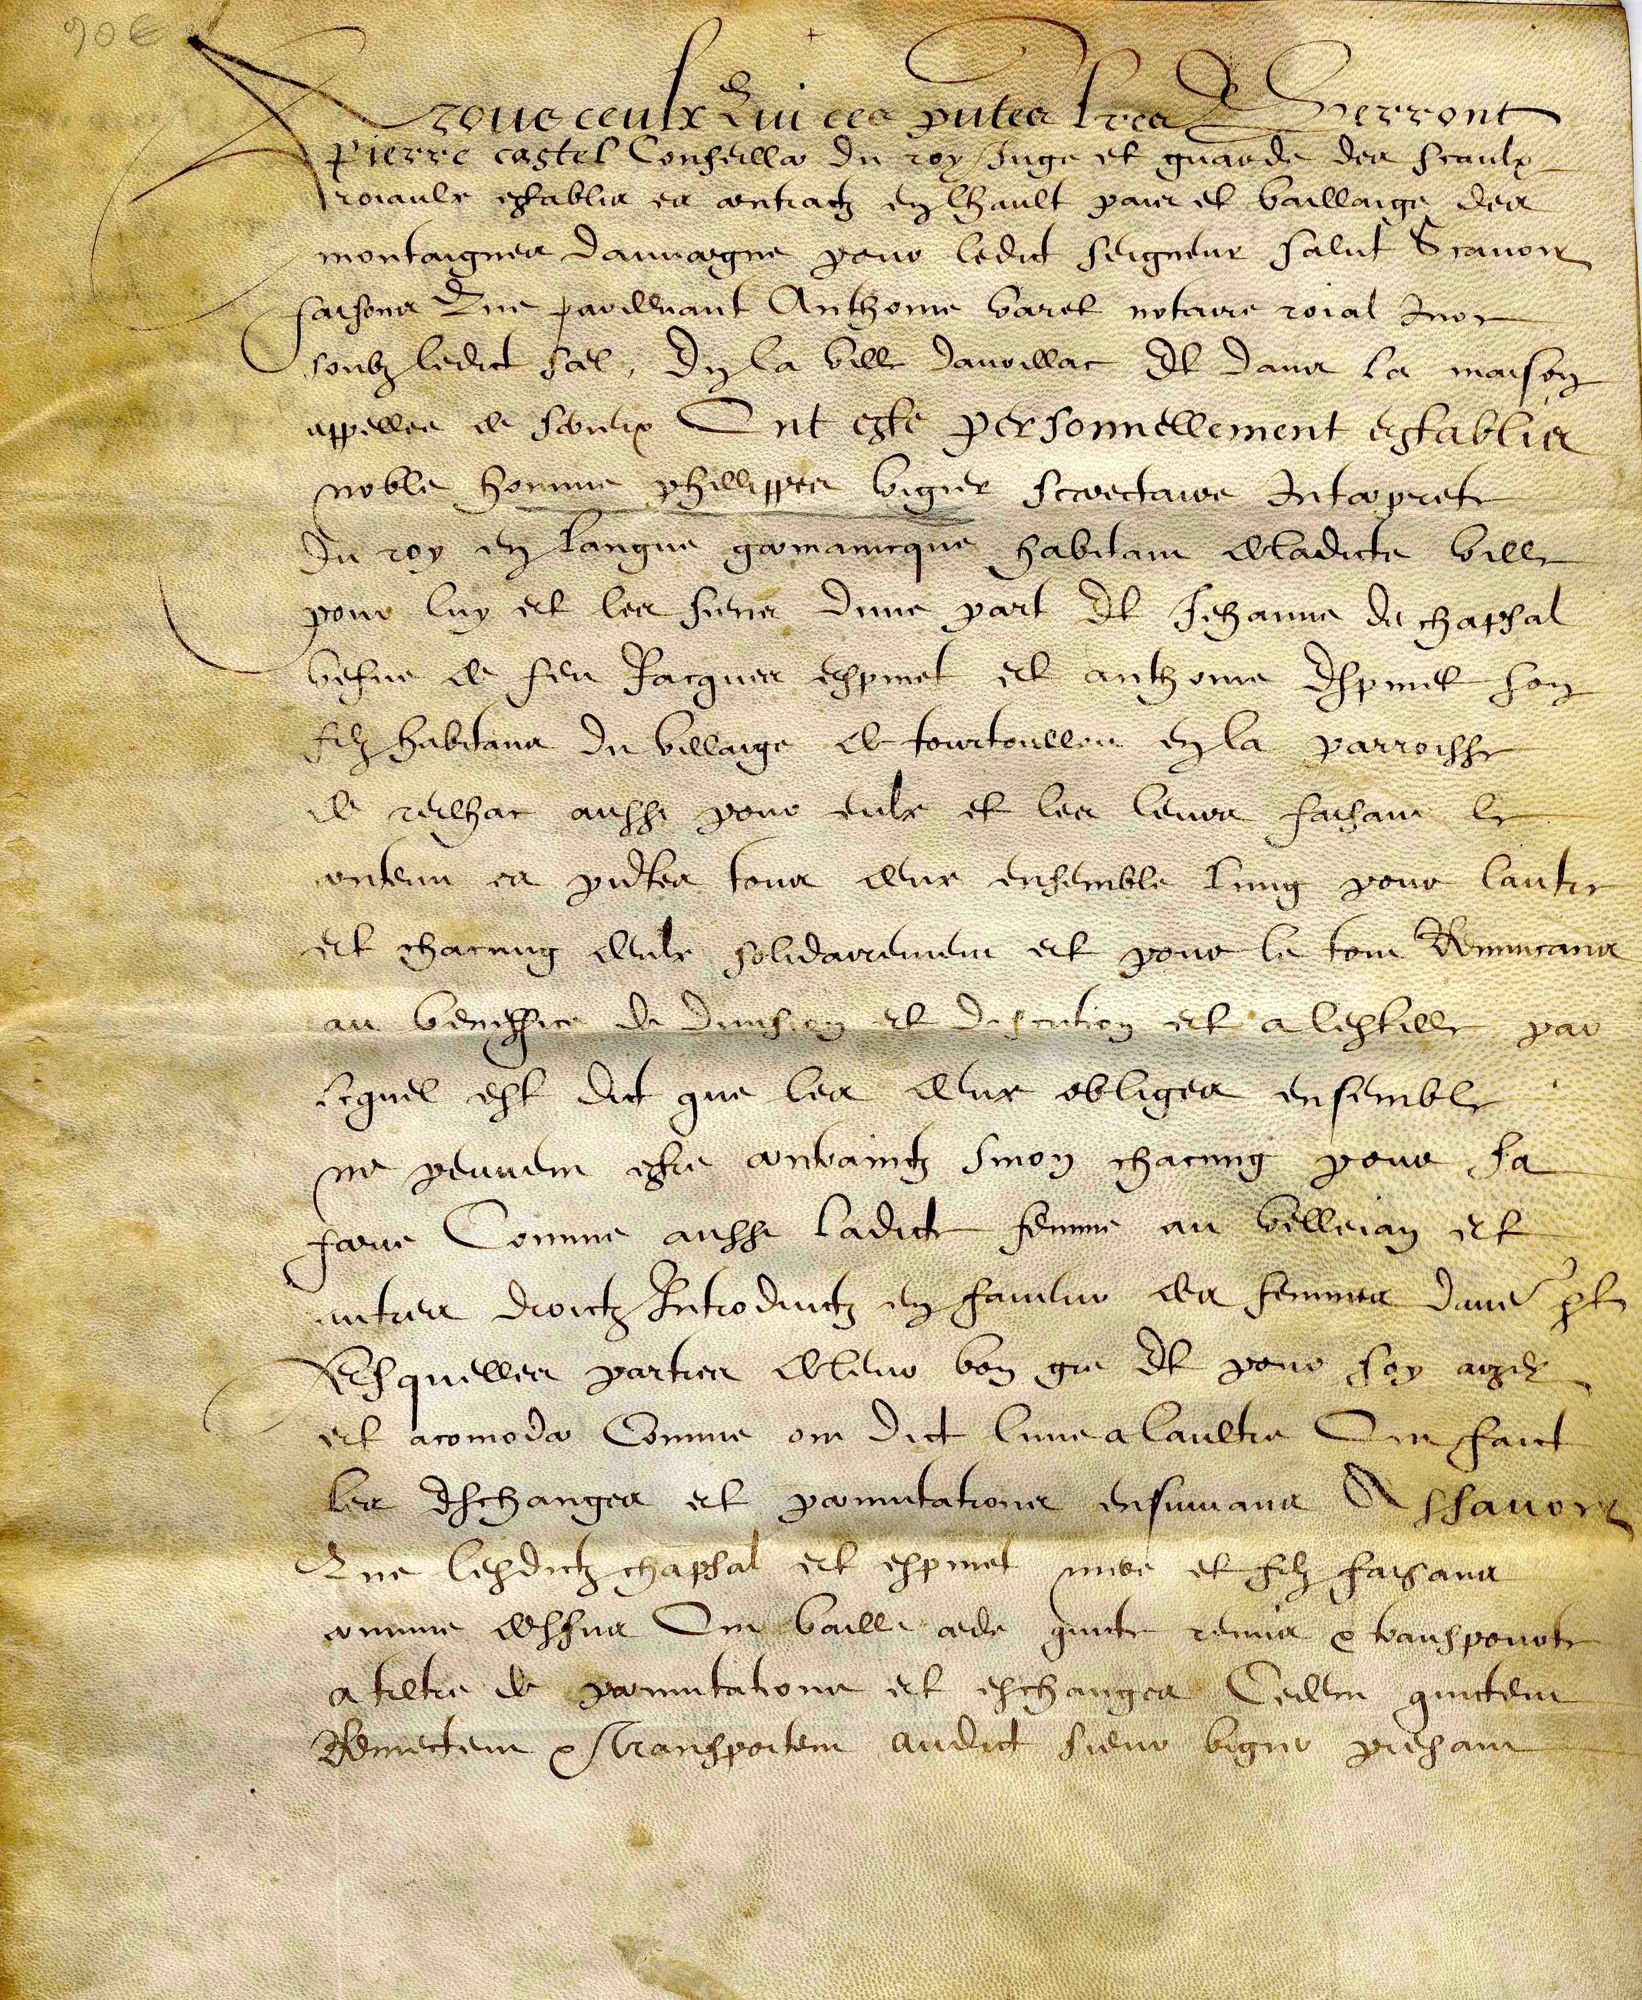 90 €
A tous ceulx Qui ces pntes lres Verront
Pierre castel Conseiller du roy Juge et guarde des sceaulx
roiaulx establis es contractz en lhault pais et baillaige des
montaignes dauvergne pour ledict seigneur salut Scavoir
faisons Que pardevant Anthoine baret notaire roial Juré
soubz ledict seel, En la ville daurillac Et dans la maison
appellee de Ont este personnellement establis
noble homme phillippes vigier secretaire Interprete
du roy en langue germanicque habitant de ladicte ville
pour luy et les siens dune part Et Jehanne de chapsal
vefve de feu Jacques espinet et anthoine Espinet son
filz habitans du villaige de tourtoullou en la parroisse
de reilhac aussi pour eulx et les leurs faisant le
contenu es pntes tous deux ensemble lung pour lautre
et chacung deulx solidairement et pour le tout Renuncans
au beneffice de division et discution et a lepistelle par
lequel est dict que les deux obliges ensemble
ne peuvent estre contrainctz sinon chacung pour sa
part Comme aussi ladicte femme au velleian et
autres droictz Introduictz en faveur des femmes dune pt
Lesquelles parties de leur bon gre Et pour soy aizer
et acomoder Comme ont dict lune a laultre Ont faict
les Eschanges et permutations ensuivans Assavoir
Que lesdictz chapsal et espinet mere et filz faisans
comme dessus Ont baille cede quicte remis & transporte
a tiltre de permutations et eschanges Cedent quictent
Remectent & transportent audict sieur vigier present